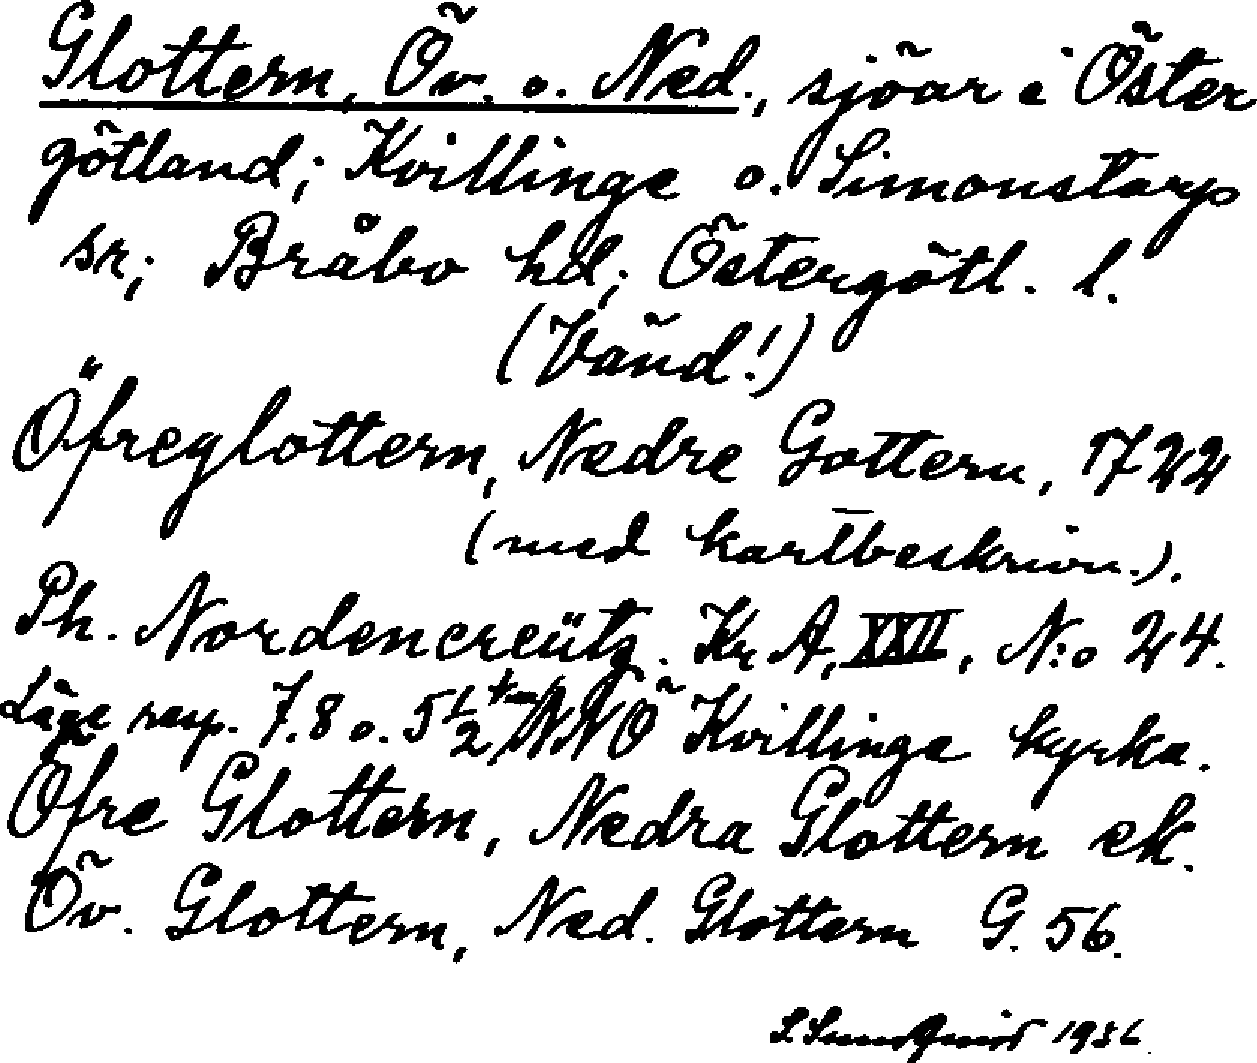 Glottern, Öv. o. Ned., sjöar i Öster
götland; Kvillinge o. Simonstorps
sr; Bråbo hd; Östergötl. l.
(Vänd!)
Öfreglottern, Nedre Gottern, 1722
(med kartbeskrivn.).
Ph. Nordencreütz. Kr A, XXII, N:o 24.
Läge resp. 7.8 o. 5 1/2 km NNÖ Kvillinge kyrka.
Öfre Glottern, Nedra Glottern ek.
Öv. Glottern, Ned. Glottern G. 56.
S Sundqvist